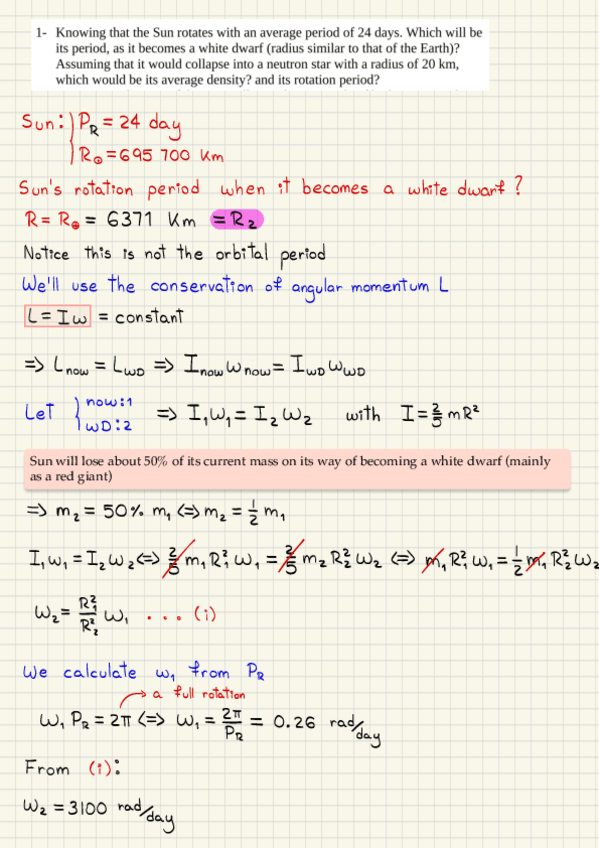 1- Knowing that the Sun rotates with an average period of 24 days. Which will be
its period, as it becomes a white dwarf (radius similar to that of the Earth)?
Assuming that it would collapse into a neutron star with a radius of 20 km,
which would be its average density? and its rotation period?
Sun: { P_R = 24 day
R☉ = 695 700 Km
Sun's rotation period when it becomes a white dwarf?
R = R⊕ = 6371 Km = R₂
Notice this is not the orbital period
We'll use the conservation of angular momentum L
L = Iω = constant
=> L_now = L_WD => I_now ω_now = I_WD ω_WD
Let { now:1
WD:2 => I₁ω₁ = I₂ω₂ with I = 2/5 mR²
Sun will lose about 50% of its current mass on its way of becoming a white dwarf (mainly
as a red giant)
=> m₂ = 50% m₁ <=> m₂ = 1/2 m₁
I₁ω₁ = I₂ω₂ <=> 2/5 m₁R₁²ω₁ = 2/5 m₂R₂²ω₂ <=> m₁R₁²ω₁ = 1/2 m₁R₂²ω₂
ω₂ = R₁²/R₂² ω₁ ... (i)
We calculate ω₁ from P_R
→ a full rotation
ω₁ P_R = 2π <=> ω₁ = 2π/P_R = 0.26 rad/day
From (i):
ω₂ = 3100 rad/day